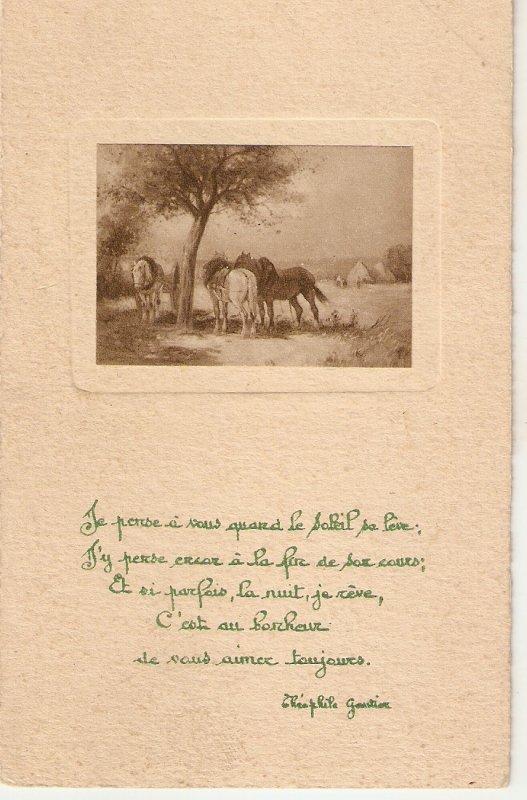 Je pense à vous quand le soleil se lève;
J'y pense encor à la fin de son cours;
Et si parfois, la nuit, je rêve,
C'est au bonheur
de vous aimer toujours.
Théophile Gautier